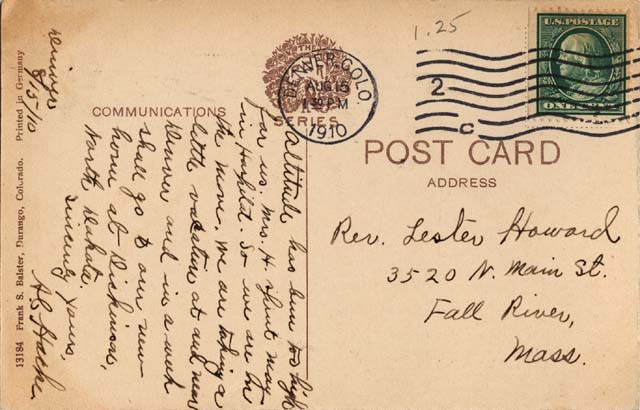 1.25
U.S. POSTAGE
ONE CENT
DENVER, COLO.
AUG 15
1 30 P.M.
1910
2
C
THE
SERIES
COMMUNICATIONS
POST CARD
ADDRESS
Rev. Lester Howard
3520 N. Main St.
Fall River,
Mass.
Denver
8/15/10
Altitude has been too high
for us. Mrs. H. spent May
in Hospital. So we are on
the move. We are taking a
little vacation at and near
Denver and in a week
shall go to our new
home at Dickinson,
North Dakota.
Sincerely yours,
13184 Frank S. Balster, Durango, Colorado. Printed in Germany